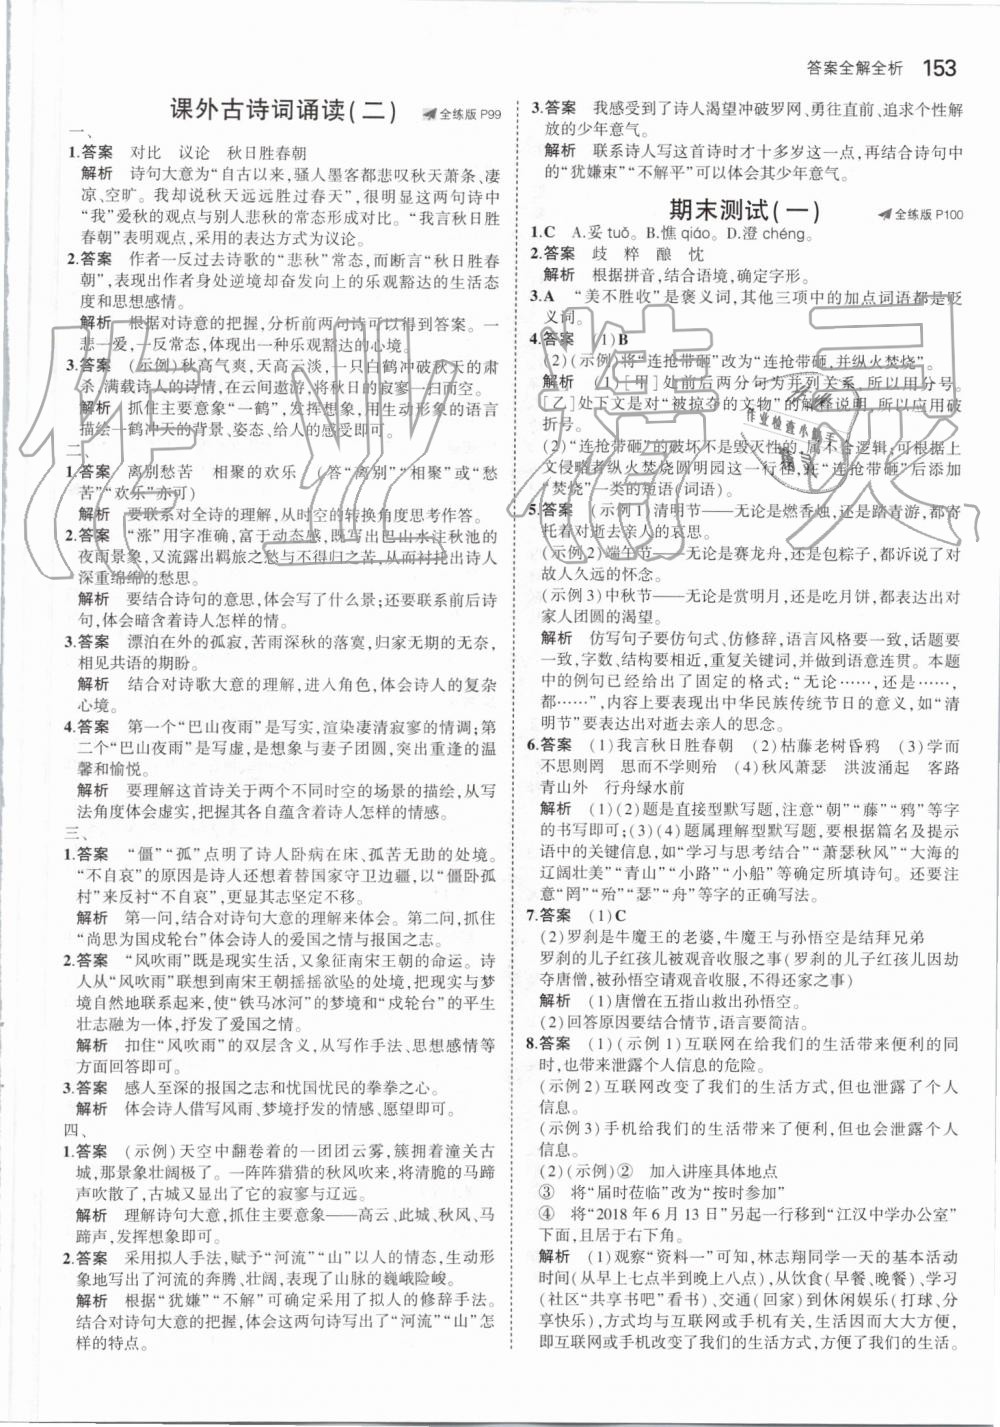 答案全解全析 153
课外古诗词诵读(二) 全练版 P99
一、
1.答案 对比 议论 秋日胜春朝
解析 诗句大意为“自古以来,骚人墨客都悲叹秋天萧条、凄
凉、空旷。我却说秋天远远胜过春天”,很明显这两句诗中
“我”爱秋的观点与别人悲秋的常态形成对比。“我言秋日胜
春朝”表明观点,采用的表达方式为议论。
2.答案 作者一反过去诗歌的“悲秋”常态,而高歌“秋日胜春
朝”,表现作者身处逆境却奋发向上的乐观豁达的生活态
度和思想感情。
解析 根据对诗意的把握,分析前两句诗可以得到答案。一
悲一爱,一反常态,体现出一种乐观豁达的心境。
3.答案 (示例)秋高气爽,天高云淡,一只白鹤冲破秋天的肃
杀,满载诗人的诗情,在云间遨游,将秋日的寂寥一扫而空。
解析 抓住主要意象“一鹤”,发挥想象,用生动形象的语言
描绘一鹤冲天的背景、姿态、给人的感受即可。
二、
1.答案 离别愁苦 相聚的欢乐 (答“离别”“相聚”或“愁
苦”“欢乐”亦可)
解析 要联系对全诗的理解,从时空的转换角度思考作答。
2.答案 “涨”用字准确,富于动态感,既写出巴山水注秋池的
夜雨景象,又流露出羁旅之愁与不得归之苦,从而衬托出诗人
深重绵绵的愁思。
解析 要结合诗句的意思,体会写了什么景;还要联系前后诗
句,体会暗含着诗人怎样的情。
3.答案 漂泊在外的孤寂,苦雨深秋的落寞,归家无期的无奈,
相见共语的期盼。
解析 结合对诗歌大意的理解,进入角色,体会诗人的复杂
心境。
4.答案 第一个“巴山夜雨”是写实,渲染凄清寂寥的情调;第
二个“巴山夜雨”是写虚,是想象与妻子团圆,突出重逢的温
馨和愉悦。
解析 要理解这首诗关于两个不同时空的场景的描绘,从写
法角度体会虚实,把握各自蕴含着诗人怎样的情感。
三、
1.答案 “僵”“孤”点明了诗人卧病在床、孤苦无助的处境。
“不自哀”的原因是诗人还想着替国家守卫边疆,以“僵卧孤
村”来反衬“不自哀”,更显其志坚定不移。
解析 第一问,结合对诗句大意的理解来体会。第二问,抓住
“尚思为国戍轮台”体会诗人的爱国之情与报国之志。
2.答案 “风吹雨”既是现实生活,又象征南宋王朝的命运。诗人
从“风吹雨”联想到南宋王朝摇摇欲坠的处境,联想到自己一
生的坎坷经历,使“铁马冰河”的梦境和“戍轮台”的平生
壮志融为一体,抒发了爱国之情。
解析 扣住“风吹雨”的双层含义,从写作手法、思想感情等
方面回答即可。
3.答案 感人至深的报国之志和忧国忧民的拳拳之心。
解析 体会诗人借写风雨、梦境抒发的情感、愿望即可。
四、
1.答案 (示例)天空中翻卷着的一团团云雾,簇拥着潼关古
城,那景象壮阔极了。一阵阵猎猎的秋风吹来,将清脆的马蹄
声吹散了,古城又显出了它的寂寥与辽远。
解析 理解诗句大意,抓住主要意象——高云、此城、秋风、马
蹄声,发挥想象即可。
2.答案 采用拟人手法,赋予“河流”“山”以人的情态,生动形
象地写出了河流的奔腾、壮阔,表现了山脉的巍峨险峻。
解析 根据“犹嫌”“不解”可确定采用了拟人的修辞手法。
结合对诗句大意的把握,体会这两句诗写出了“河流”“山”怎
样的特点。
3.答案 我感受到了诗人渴望冲破罗网、勇往直前、追求个性解
放的少年意气。
解析 联系诗人写这首诗时才十多岁这一点,再结合诗句中
的“犹嫌束”“不解平”可以体会其少年意气。
期末测试(一) 全练版 P100
1.C A.妥 tuǒ。B.憔 qiáo。D.澄 chéng。
2.答案 歧 粹 酿 忱
解析 根据拼音,结合语境,确定字形。
3.A “美不胜收”是褒义词,其他三项中的加点词语都是贬
义词。
4.答案 (1)B
(2)(示例)将“连抢带砸”改为“连抢带砸,并纵火焚烧”。
解析 (1)[甲]处前后两分句为并列关系,所以用分号。
[乙]处下文是对“被掠夺的文物”的解释说明,所以用破
折号。
(2)“连抢带砸”的破坏不是毁灭性的,不合逻辑;可根据上
文侵略者纵火焚烧圆明园这一行径,在“连抢带砸”后添加
“焚烧”一类的短语(词语)。
5.答案 (示例1)清明节——无论是燃香烛,还是踏青游,都寄
托着对逝去亲人的哀思。
(示例2)端午节——无论是赛龙舟,还是包粽子,都诉说了对
故人久远的怀念。
(示例3)中秋节——无论是赏明月,还是吃月饼,都表达出对
家人团圆的渴望。
解析 仿写句子要仿句式、仿修辞,语言风格要一致,话题要
一致,字数、结构要相近,重复关键词,并做到语意连贯。本题
中的例句已经给出了固定的格式:“无论……,还是……,
都……”,内容上要表现出中华民族传统节日的意义,如“清
明节”要表达出对逝去亲人的思念。
6.答案 (1)我言秋日胜春朝 (2)枯藤老树昏鸦 (3)学而
不思则罔 思而不学则殆 (4)秋风萧瑟 洪波涌起 客路
青山外 行舟绿水前
解析 (1)(2)题是直接型默写题,注意“朝”“藤”“鸦”等字
的书写即可;(3)(4)题属理解型默写题,要根据篇名及提示
语中的关键信息,如“学习与思考结合”“萧瑟秋风”“大海的
辽阔壮美”“青山”“小路”“小船”等确定所填诗句。还要注
意“罔”“殆”“瑟”“舟”等字的正确写法。
7.答案 (1)C
(2)罗刹是牛魔王的老婆,牛魔王与孙悟空是结拜兄弟
罗刹的儿子红孩儿被观音收服之事(罗刹的儿子红孩儿因劫
夺唐僧,被孙悟空请观音收服,不得还家之事)
解析 (1)唐僧在五指山救出孙悟空。
(2)回答原因要结合情节,语言要简洁。
8.答案 (1)(示例1)互联网在给我们的生活带来便利的同
时,也带来泄露个人信息的危险。
(示例2)互联网改变了我们的生活方式,但也泄露了个人
信息。
(示例3)手机给我们的生活带来了便利,但也会泄露个人
信息。
(2)(示例)② 加入讲座具体地点
③ 将“届时莅临”改为“按时参加”
④ 将“2018年6月13日”另起一行移到“江汉中学办公室”
下面,且居于右下角。
解析 (1)观察“资料一”可知,林志翔同学一天的基本活动
时间(从早上七点半到晚上八点),从饮食(早餐、晚餐)、学习
(社区“共享书吧”看书)、交通(回家)到休闲娱乐(打球、分
享快乐),方式均与互联网或手机有关,生活因而大大方便,
即互联网或手机改变了我们的生活方式,方便了我们的生活。
作业精灵
作业检查小助手